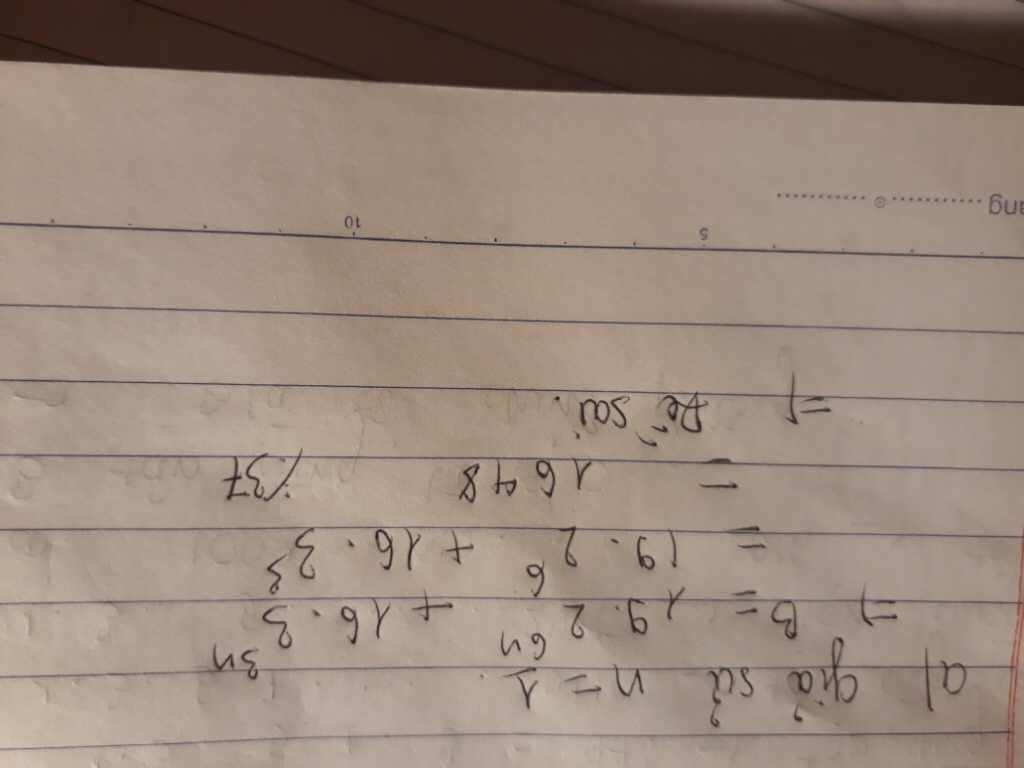 a) giả sử n = 1
=> B = 19 . 2^6n + 16 . 3^3n
= 19 . 2^6 + 16 . 3^3
= 1648 ⋮̸ 37
=> Đề sai.
5 10